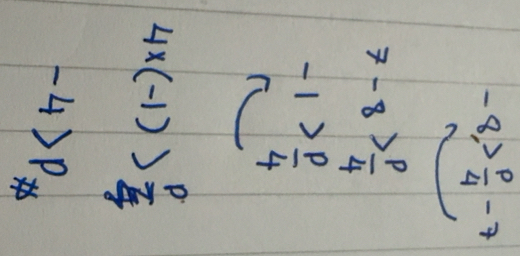 -8 < p/4 - 7
7 - 8 < p/4
-1 < p/4
4×(-1) < p
-4 < p #